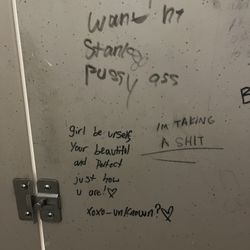 want h?
Stanky
pussy ass
girl be urself
Your beautiful
and Perfect
just how
u are!♡
xoxo-unknown?♡
IM TAKING
A SHIT
B